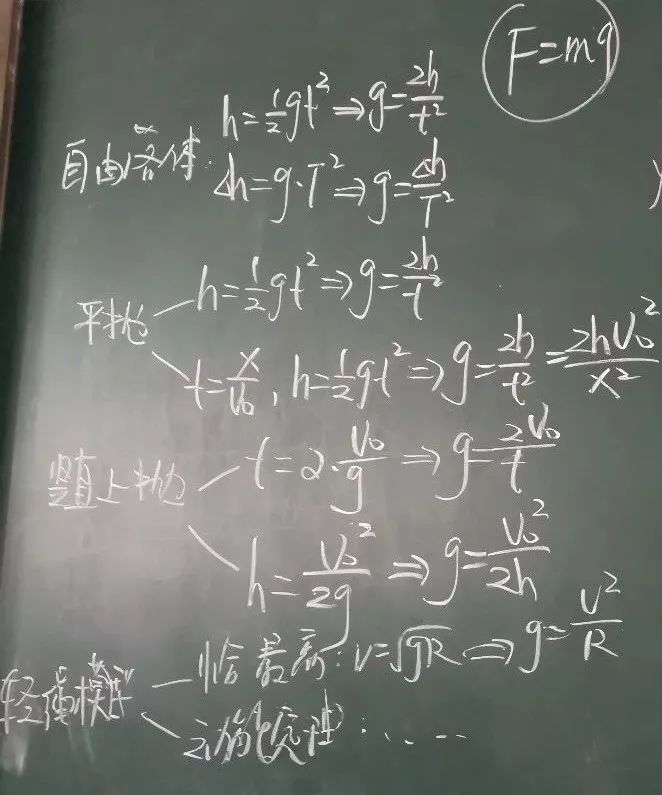 F=mg
自由落体:
h=½gt²⇒g=2h/t²
Δh=g·T²⇒g=Δh/T²
平抛
h=½gt²⇒g=2h/t²
t=x/V₀, h=½gt²⇒g=2h/t²=2hV₀²/x²
竖直上抛
t=2·V₀/g⇒g=2V₀/t
h=V₀²/2g⇒g=V₀²/2h
轻绳模型
恰最高:v=√gR⇒g=v²/R